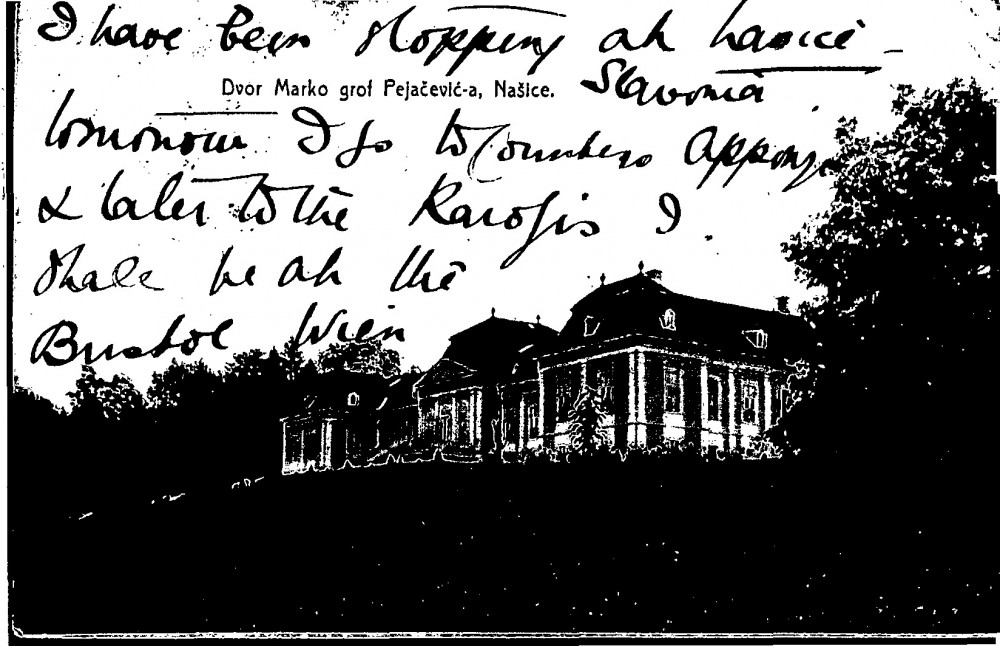 I have been stopping at Nasice –
Dvor Marko grof Pejačević-a, Našice.
Slavonia
tomorrow I go to Countess Appony
& later to the Karolyis I
shall be at the
Bristol Wien